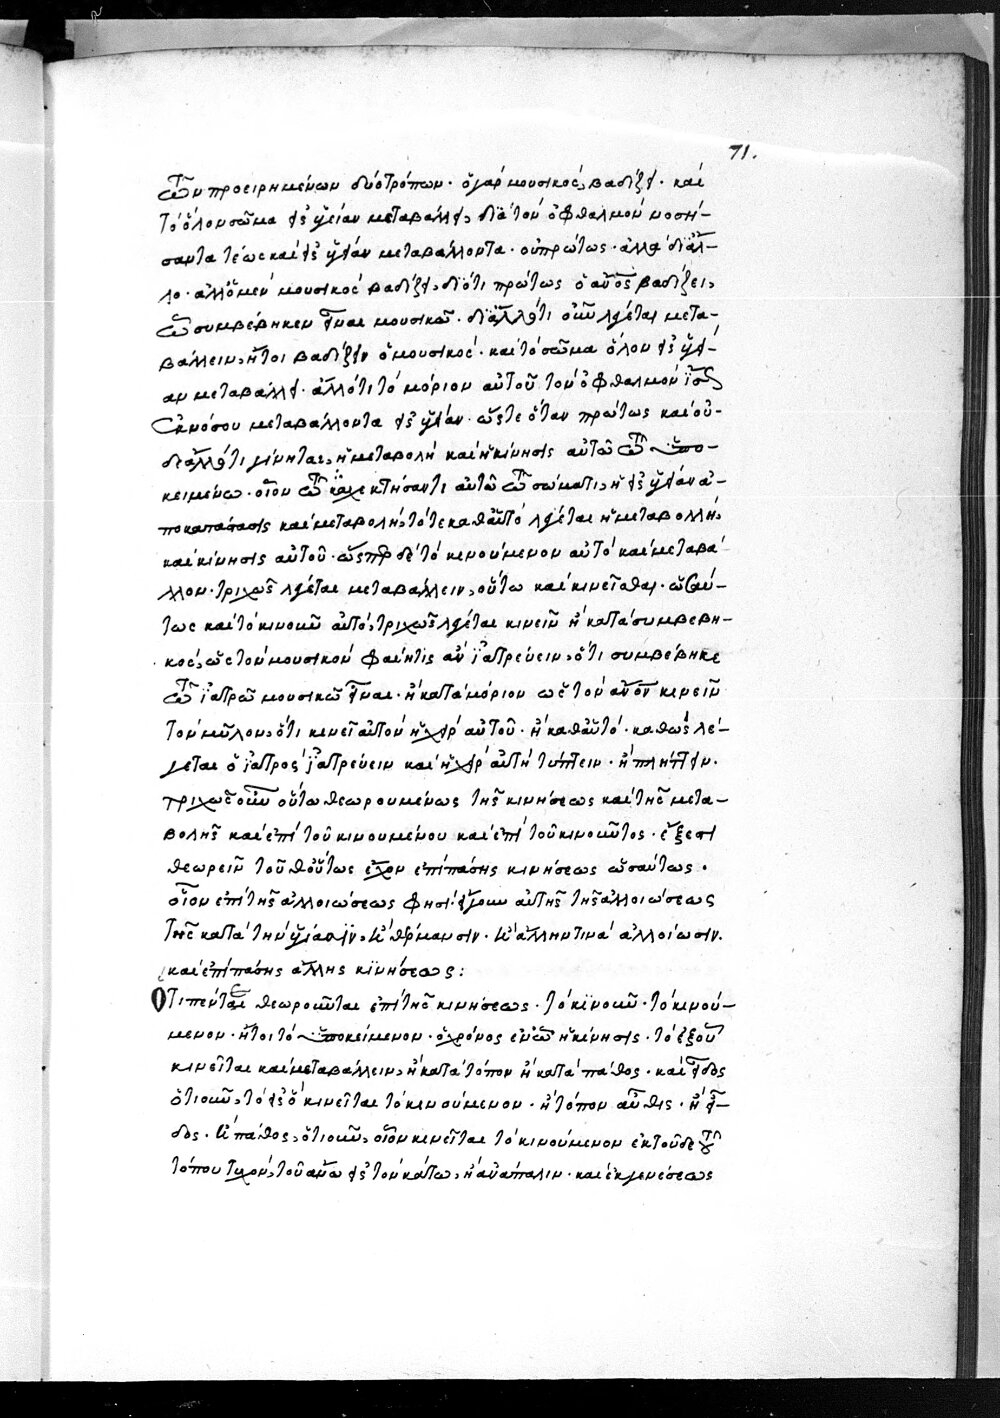 71.
τῶν προειρημένων δύο τρόπων· ὁ γὰρ μουσικὸς, βαδίζει· καὶ
τὸ ὅλον σῶμα εἰς ὑγείαν μεταβάλλει, διὰ τὸν ὀφθαλμὸν νοσή-
σαντα τέως καὶ εἰς ὑγείαν μεταβάλλοντα· οὐ πρώτως· ἀλλὰ δι' ἄλ-
λο· ἀλλ' ὁ μὲν μουσικὸς βαδίζει, διότι πρώτως ὁ αὐτὸς βαδίζει,
ᾧ συμβέβηκεν εἶναι μουσικῷ· δι' ἄλλό τι οὖν λέγεται μετα-
βάλλειν, ἤτοι βαδίζειν ὁ μουσικός· καὶ τὸ σῶμα ὅλον εἰς ὑγεί-
αν μεταβάλλει· ἀλλ' ὅτι τὸ μόριον αὐτοῦ τὸν ὀφθαλμὸν
ἐκ νόσου μεταβάλλοντα εἰς ὑγείαν· ὥστε ὅταν πρώτως καὶ οὐ-
δι' ἄλλό τι γίνηται, ἡ μεταβολὴ καὶ ἡ κίνησις αὐτῷ τῷ ὑπο-
κειμένω· οἷον τῷ καχεκτήσαντι αὐτῷ τῷ σώματι, ἡ εἰς ὑγείαν ἀ-
ποκατάστασις καὶ μεταβολή, τότε καθ' αὑτὸ λέγεται ἡ μεταβολλή,
καὶ κίνησις αὐτοῦ· ὥσπερ δὲ τὸ κινούμενον αὐτὸ καὶ μεταβά-
λλον· τριχῶς λέγεται μεταβάλλειν, οὕτω καὶ κινεῖσθαι· ὡσαύ-
τως καὶ τὸ κινοῦν αὐτό, τριχῶς λέγεται κινεῖν ἢ κατὰ συμβεβη-
κὸς, ὡς τὸν μουσικὸν φαίη τις ἂν ἰατρεύειν, ὅτι συμβέβηκε
τῷ ἰατρῷ μουσικῷ εἶναι· ἢ κατὰ μόριον ὡς τὸν αὐτὸν κινεῖν
τὸν μῦλον, ὅτι κινεῖ αὐτὸν ἡ χεὶρ αὐτοῦ· ἢ καθ' αὑτό· καθὼς λέ-
γεται ὁ ἰατρὸς ἰατρεύειν καὶ ἡ χεὶρ αὐτὴ τύπτειν· ἢ πλήττειν.
τριχῶς οὖν οὕτω θεωρουμένως τῆς κινήσεως καὶ τῆς μετα-
βολῆς καὶ ἐπὶ τοῦ κινουμένου καὶ ἐπὶ τοῦ κινοῦντος· ἔξεστι
θεωρεῖν τοῦθ' οὕτως ἔχον ἐπὶ πάσης κινήσεως ὡσαύτως·
οἷον ἐπὶ τῆς ἀλλοιώσεως φησὶ· αὐτῆς τῆς ἀλλοιώσεως
τῆς κατὰ τὴν ὑγίασιν, ἢ θέρμανσιν· ἢ ἄλλην τινὰ ἀλλοίωσιν.
καὶ ἐπὶ πάσης ἄλλης κινήσεως:
Ὅτι πέντε θεωροῦνται ἐπὶ τῆς κινήσεως· τὸ κινοῦν· τὸ κινού-
μενον· ἤτοι τὸ ὑποκείμενον· ὁ χρόνος ἐν ᾧ ἡ κίνησις· τὸ ἐξ οὗ
κινεῖται καὶ μεταβάλλειν, ἢ κατὰ τόπον ἢ κατὰ πάθος· καὶ εἶδος
ὁτιοῦν, τὸ εἰς ὃ κινεῖται τὸ κινούμενον· ἢ τόπον αὖθις· ἢ εἶ-
δος· ἢ πάθος, ὁτιοῦν, οἷον κινεῖται τὸ κινούμενον ἐκ τοῦδε τοῦ
τόπου τυχὸν, τοῦ ἄνω εἰς τὸν κάτω, ἢ ἀνάπαλιν· καὶ ἐκ γενέσεως